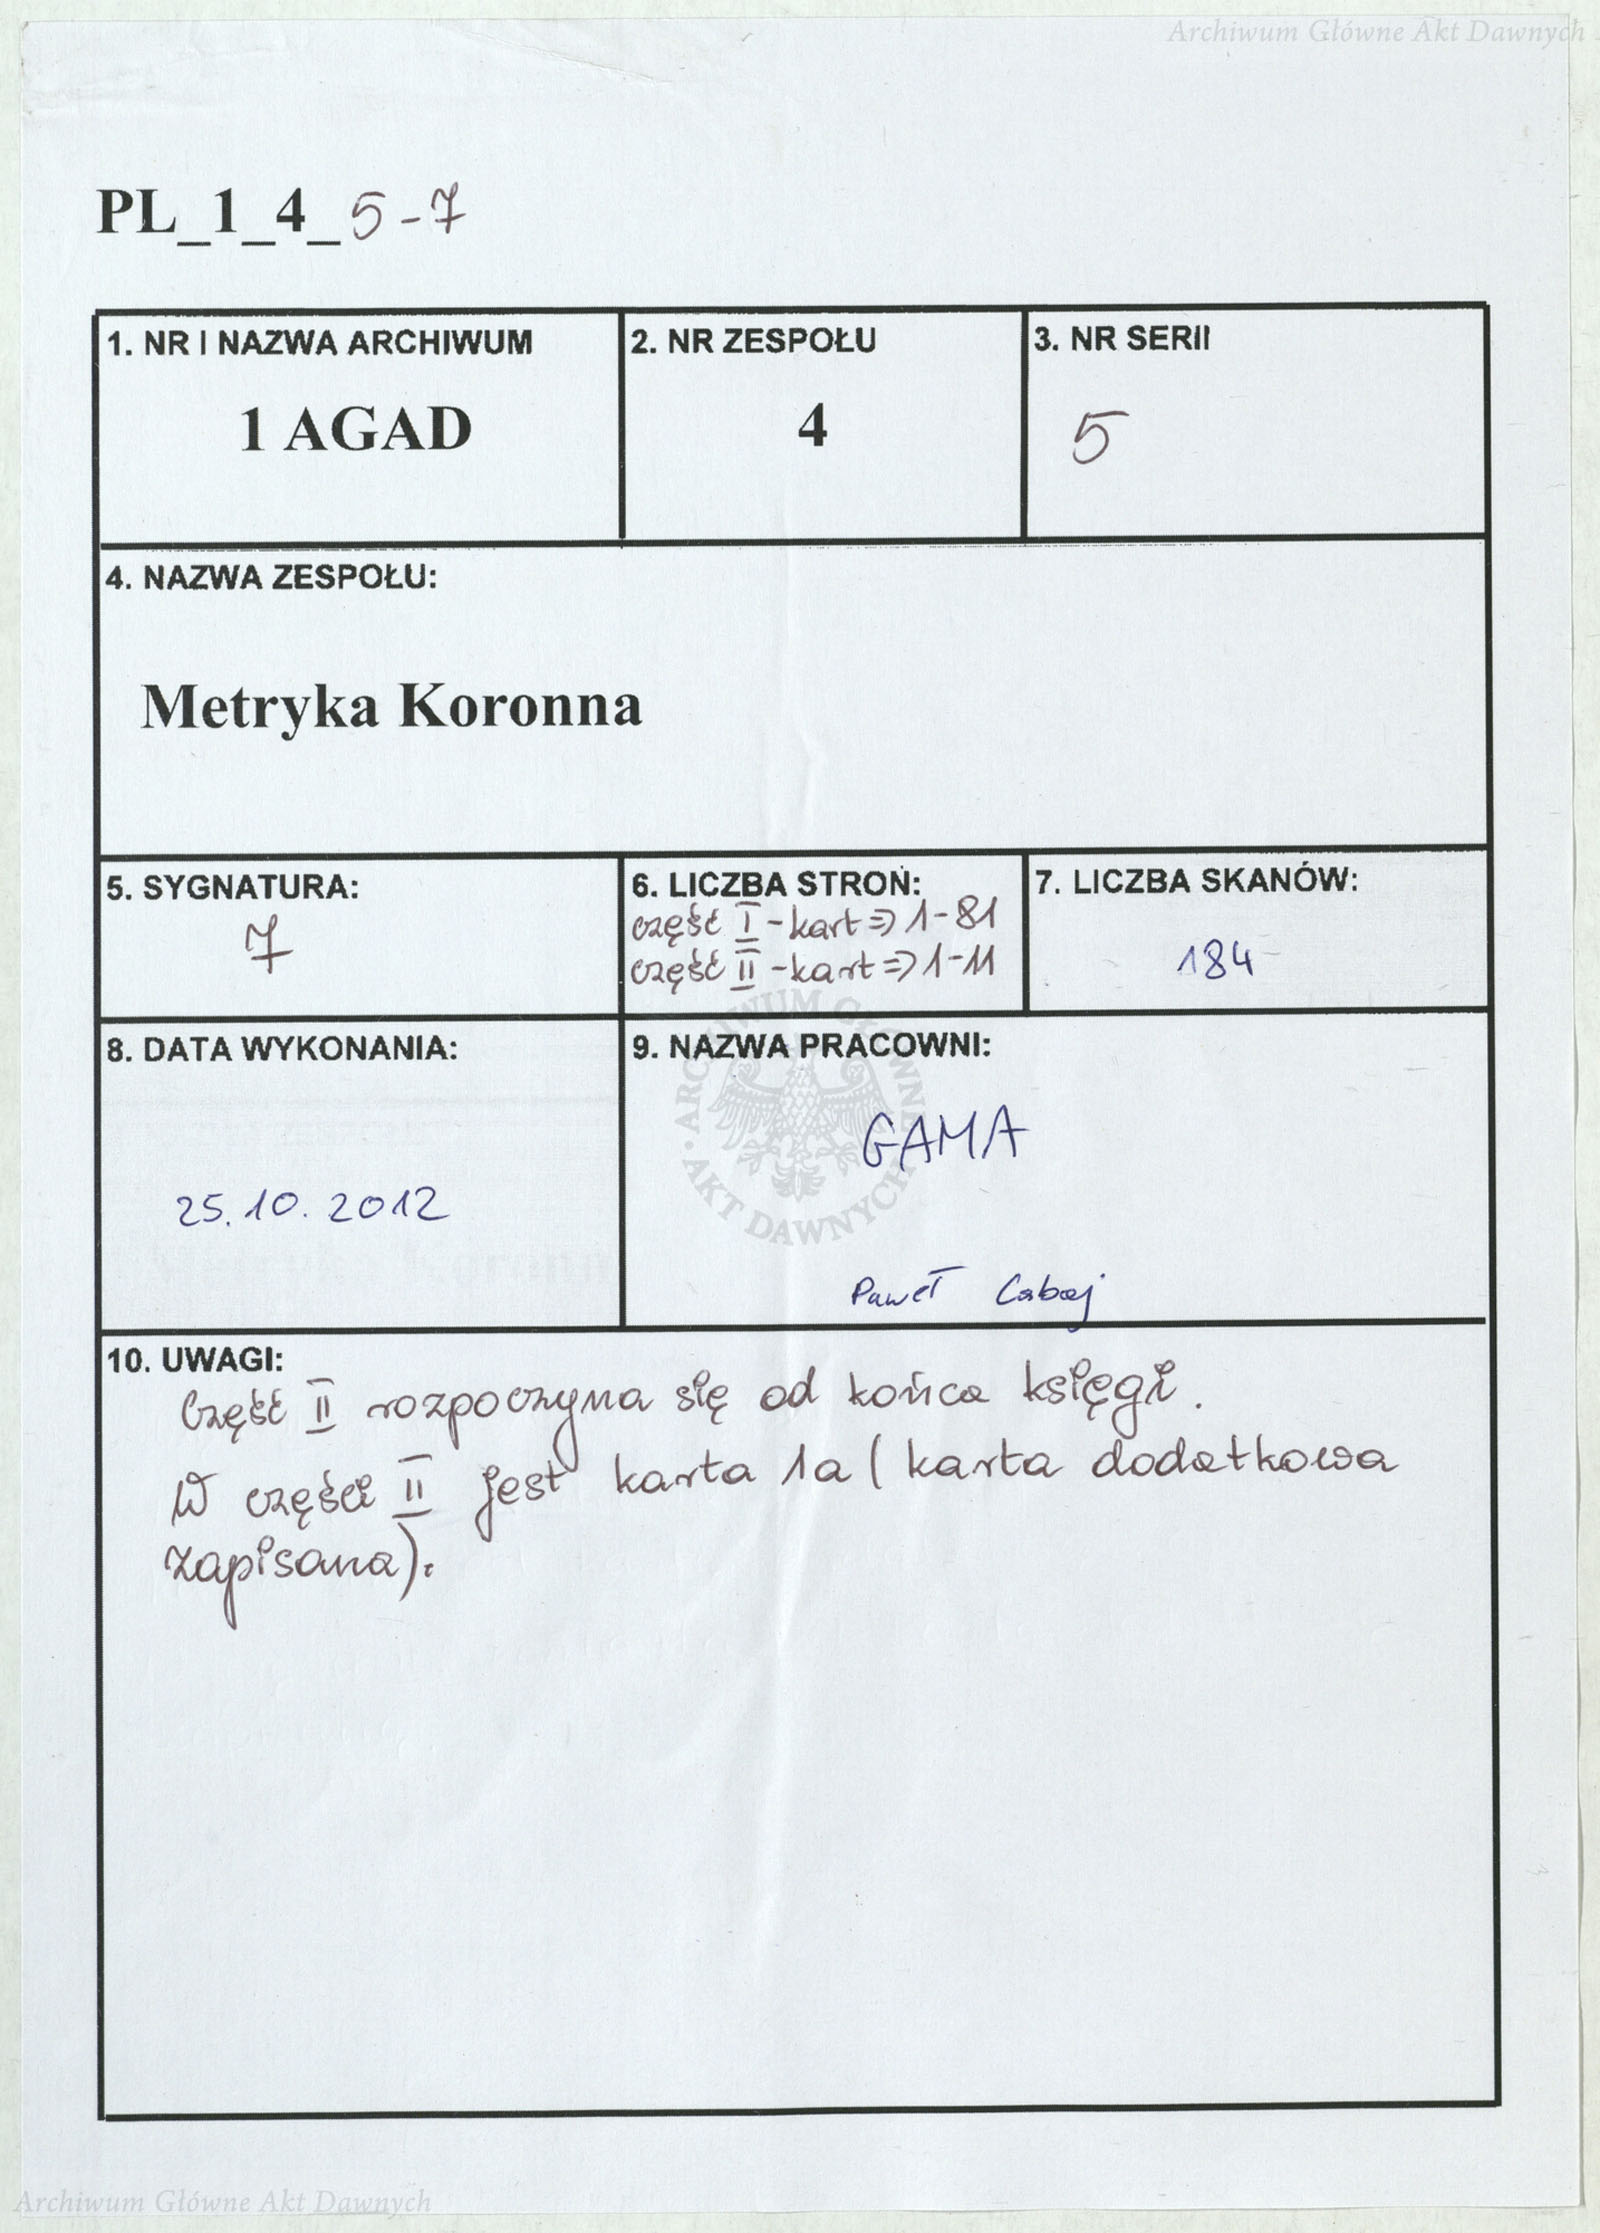 Archiwum Główne Akt Dawnych
PL_1_4_5-7
1. NR I NAZWA ARCHIWUM
1 AGAD
2. NR ZESPOŁU
4
3. NR SERII
5
4. NAZWA ZESPOŁU:
Metryka Koronna
5. SYGNATURA:
7
6. LICZBA STRON:
część I - kart => 1-81
część II - kart => 1-11
7. LICZBA SKANÓW:
184
8. DATA WYKONANIA:
25.10.2012
9. NAZWA PRACOWNI:
GAMA
Paweł Cabaj
ARCHIWUM GŁÓWNE AKT DAWNYCH
10. UWAGI:
Część II rozpoczyna się od końca księgi.
W części II jest karta 1a (karta dodatkowa
zapisana).
Archiwum Główne Akt Dawnych